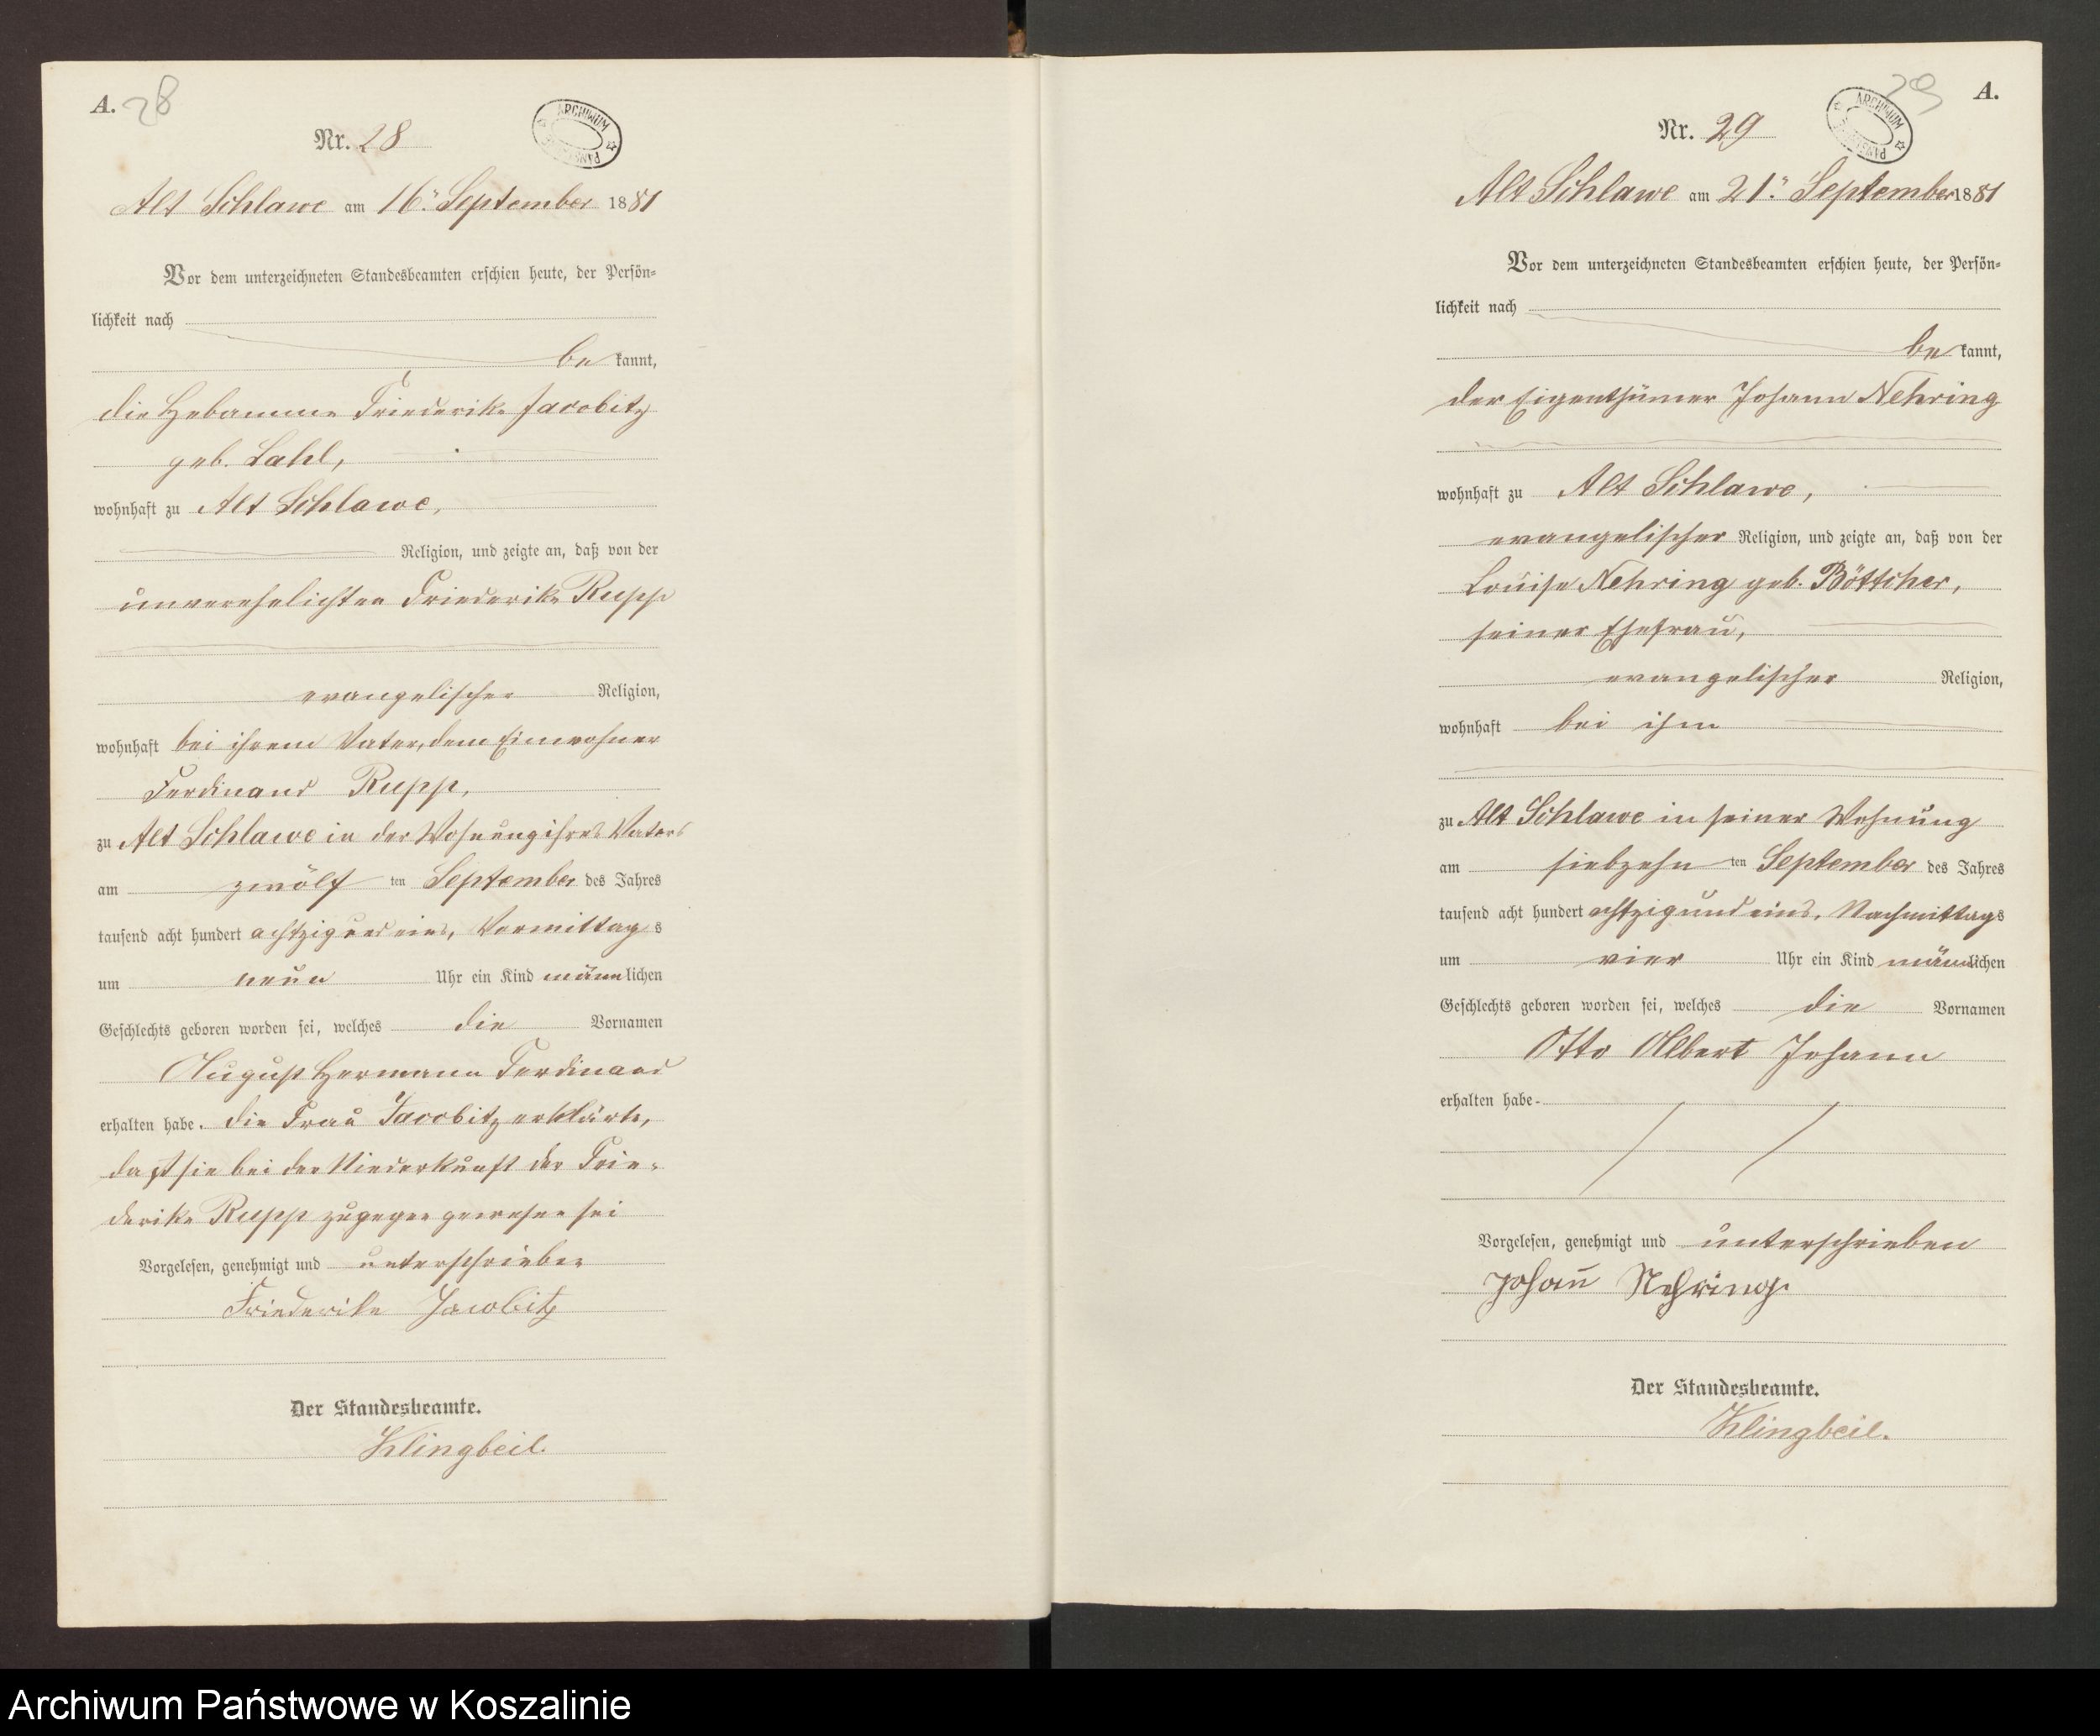 A. 28
Nr. 28
ARCHIWUM
Alt Schlawe am 16ᵗ September 1881
Vor dem unterzeichneten Standesbeamten erschien heute, der Persön-
lichkeit nach
be kannt,
die Hebamme Friederike Jacobitz
geb. Lahl,
wohnhaft zu Alt Schlawe,
Religion, und zeigte an, daß von der
unverehelichten Friederike Rupp
evangelischer Religion,
wohnhaft bei ihrem Vater, dem Einwohner
Ferdinand Rupp,
zu Alt Schlawe in der Wohnung ihres Vaters
am zwölf ten September des Jahres
tausend acht hundert achtzig und eins, Vormittag s
um neun Uhr ein Kind männ lichen
Geschlechts geboren worden sei, welches die Vornamen
August Hermann Ferdinand
erhalten habe. Die Frau Jacobitz erklärte,
daß sie bei der Niederkunft der Frie-
derike Rupp zugegen gewesen sei
Vorgelesen, genehmigt und unterschrieben
Friederike Jacobitz
Der Standesbeamte.
Klingbeil.
29 A.
Nr. 29
ARCHIWUM
Alt Schlawe am 21ᵗ September 1881
Vor dem unterzeichneten Standesbeamten erschien heute, der Persön-
lichkeit nach
be kannt,
der Eigenthümer Johann Nehring
wohnhaft zu Alt Schlawe,
evangelischer Religion, und zeigte an, daß von der
Louise Nehring geb. Böttcher,
seiner Ehefrau,
evangelischer Religion,
wohnhaft bei ihm
zu Alt Schlawe in seiner Wohnung
am siebzehn ten September des Jahres
tausend acht hundert achtzig und eins, Nachmittag s
um vier Uhr ein Kind männ lichen
Geschlechts geboren worden sei, welches die Vornamen
Otto Albert Johann
erhalten habe.
Vorgelesen, genehmigt und unterschrieben
Johann Nehring.
Der Standesbeamte.
Klingbeil.
Archiwum Państwowe w Koszalinie